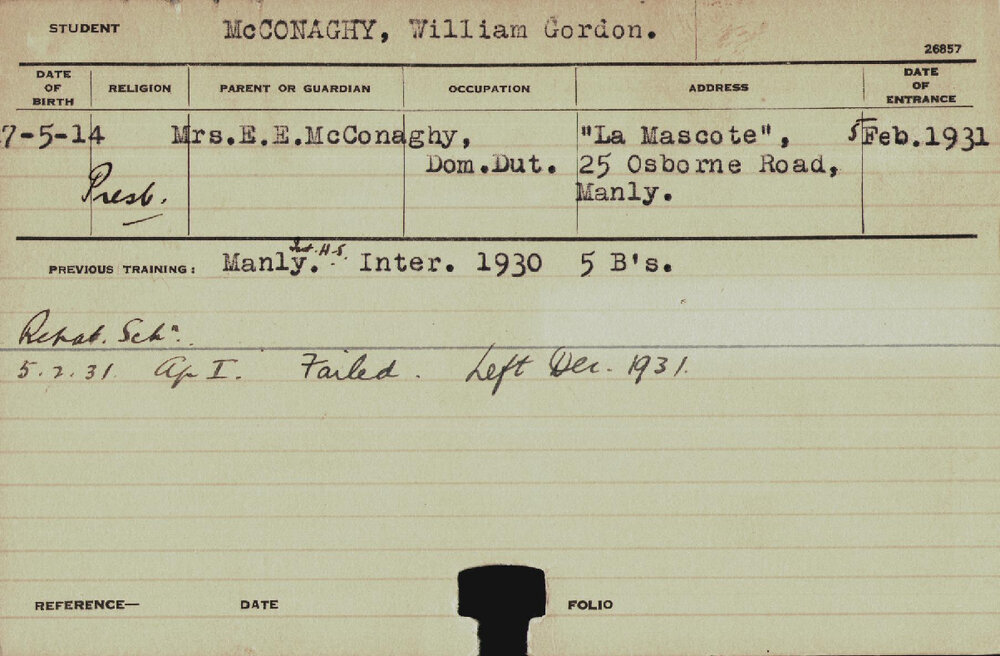 STUDENT McCONAGHY, William Gordon.
26857
DATE OF BIRTH RELIGION PARENT OR GUARDIAN OCCUPATION ADDRESS DATE OF ENTRANCE
7-5-14 Mrs.E.E.McConaghy, "La Mascote", 5 Feb.1931
Presb. Dom.Dut. 25 Osborne Road,
Manly.
Int. H.S.
PREVIOUS TRAINING: Manly. Inter. 1930 5 B's.
Repat. Sch.
5.2.31. Ap I. Failed. Left Dec. 1931.
REFERENCE— DATE FOLIO